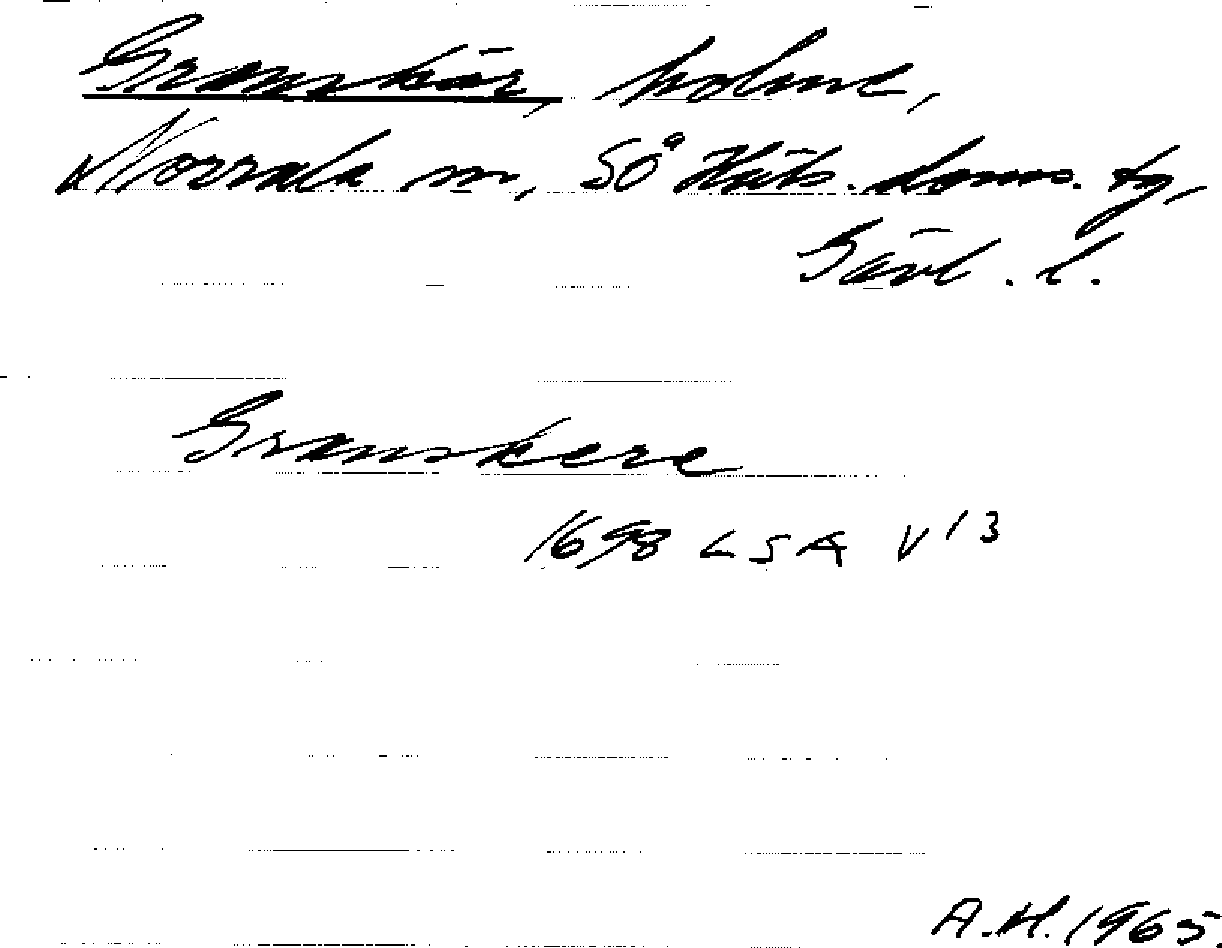 Granskär, holme,
Norrala sn, SÖ Häls. doms. tg,
Gävl. l.
Granskere
1698 LSA V13
A.H. 1965.